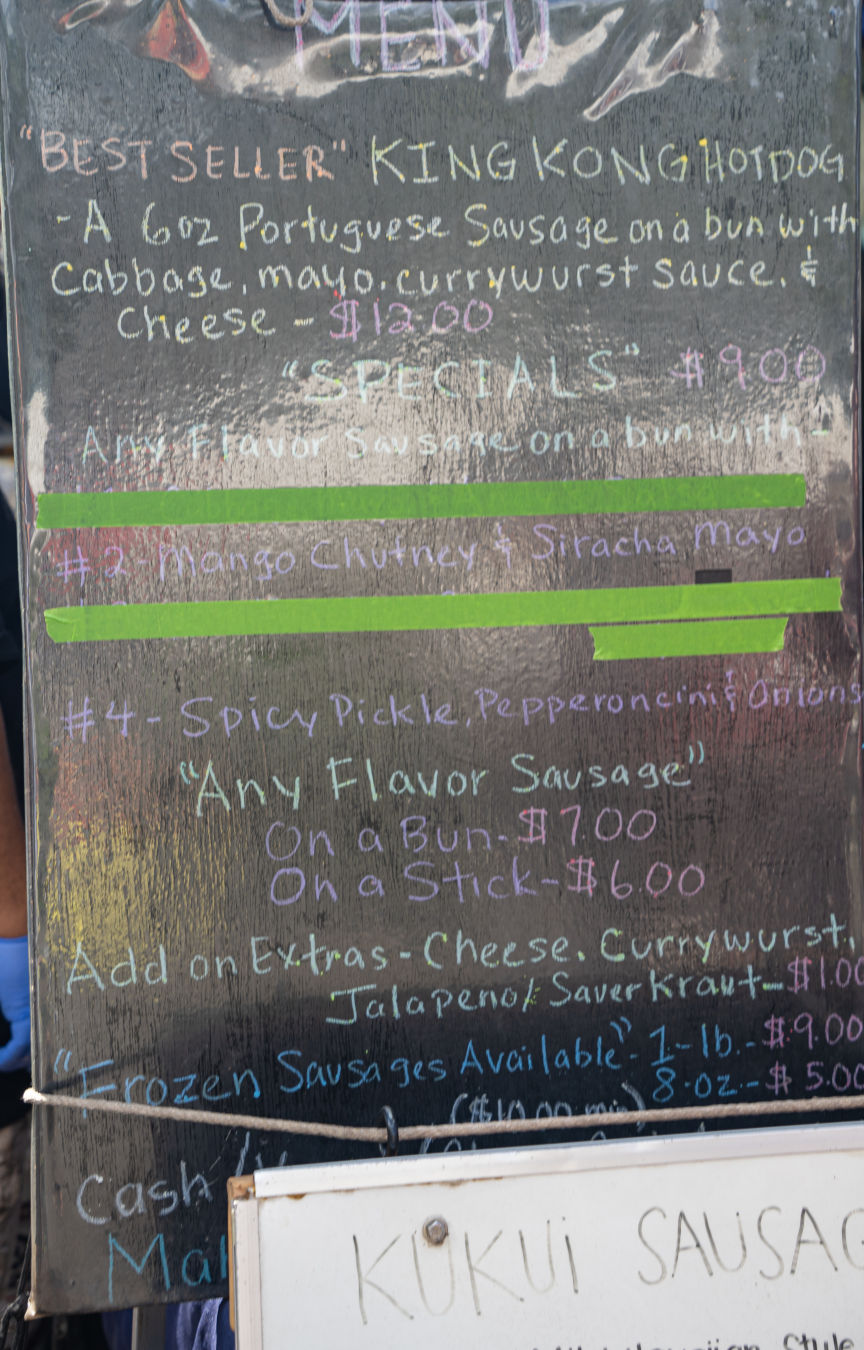 MENU
"BEST SELLER" KING KONG HOTDOG
-A 6oz Portuguese Sausage on a bun with
Cabbage, mayo, currywurst sauce, &
Cheese - $12.00
"SPECIALS" $9.00
Any Flavor Sausage on a bun with-
#2-Mango Chutney & Siracha Mayo
#4- Spicy Pickle, Pepperoncini & Onions
"Any Flavor Sausage"
On a Bun-$7.00
On a Stick-$6.00
Add on Extras-Cheese, Currywurst,
Jalapeno/Saver Kraut-$1.00
"Frozen Sausages Available"- 1-lb.-$9.00
8-oz.-$5.00
($10.00 min)
Cash
KUKUi SAUSAG
Style